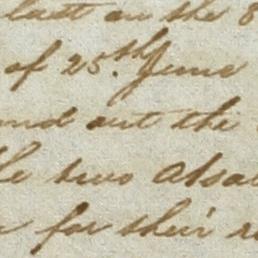 last on the 8
of 25.th June
and out the
two Absa
for their